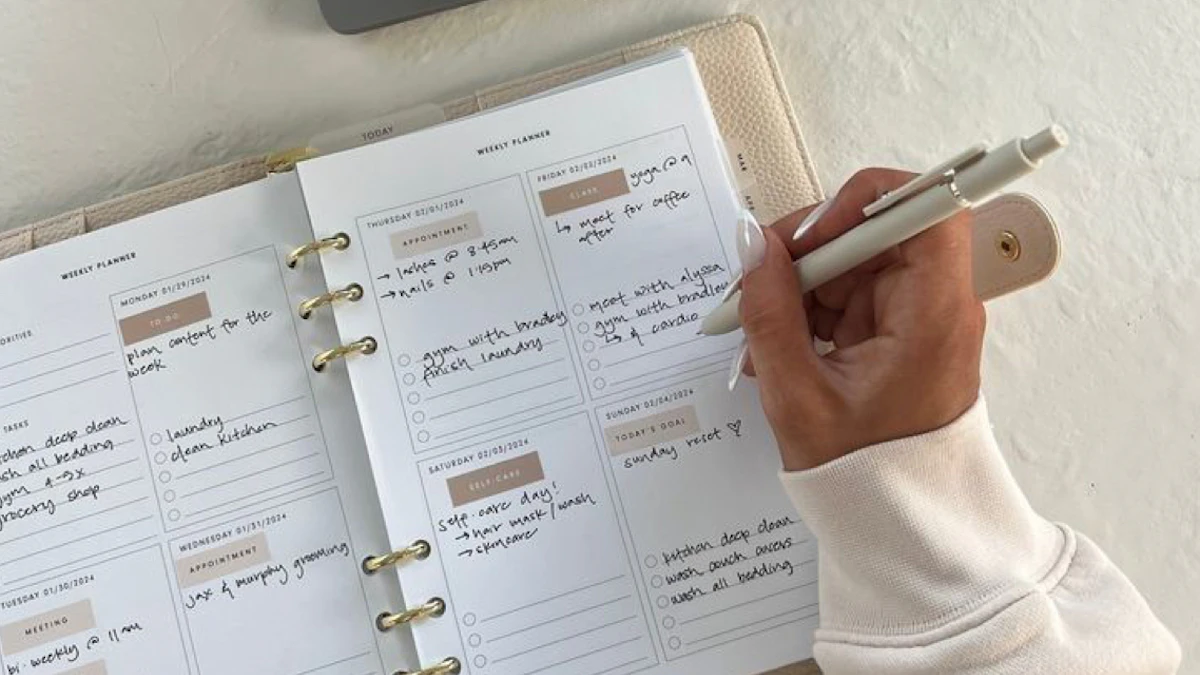 TODAY
WEEKLY PLANNER
TASKS
deep clean
all bedding
gym 4→5x
grocery shop
MONDAY 01/29/2024
TO-DO
plan content for the
week
laundry
clean kitchen
TUESDAY 01/30/2024
MEETING
bi-weekly @ 11am
WEDNESDAY 01/31/2024
APPOINTMENT
jax & murphy grooming
WEEKLY PLANNER
THURSDAY 02/01/2024
APPOINTMENT
→ lashes @ 8:45am
→ nails @ 1:15pm
gym with bradley
finish laundry
FRIDAY 02/02/2024
CLASS
yoga @ 9
↳ meet for coffee
after
meet with alyssa
gym with bradley
↳ & cardio
SATURDAY 02/03/2024
SELF-CARE
self-care day!
→ hair mask/wash
→ skincare
SUNDAY 02/04/2024
TODAY'S GOAL
sunday reset ♡
kitchen deep clean
wash couch covers
wash all bedding
MAR